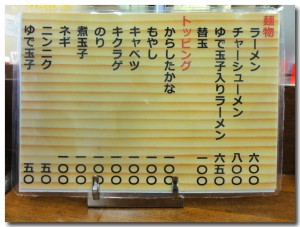 麺物
ラーメン 六〇〇
チャーシューメン 八〇〇
ゆで玉子入りラーメン 六五〇
替玉 一〇〇
トッピング
からしたかな 一〇〇
もやし 一〇〇
キャベツ 一〇〇
キクラゲ 一〇〇
のり 一〇〇
煮玉子 一〇〇
ネギ 一〇〇
ニンニク 五〇
ゆで玉子 五〇